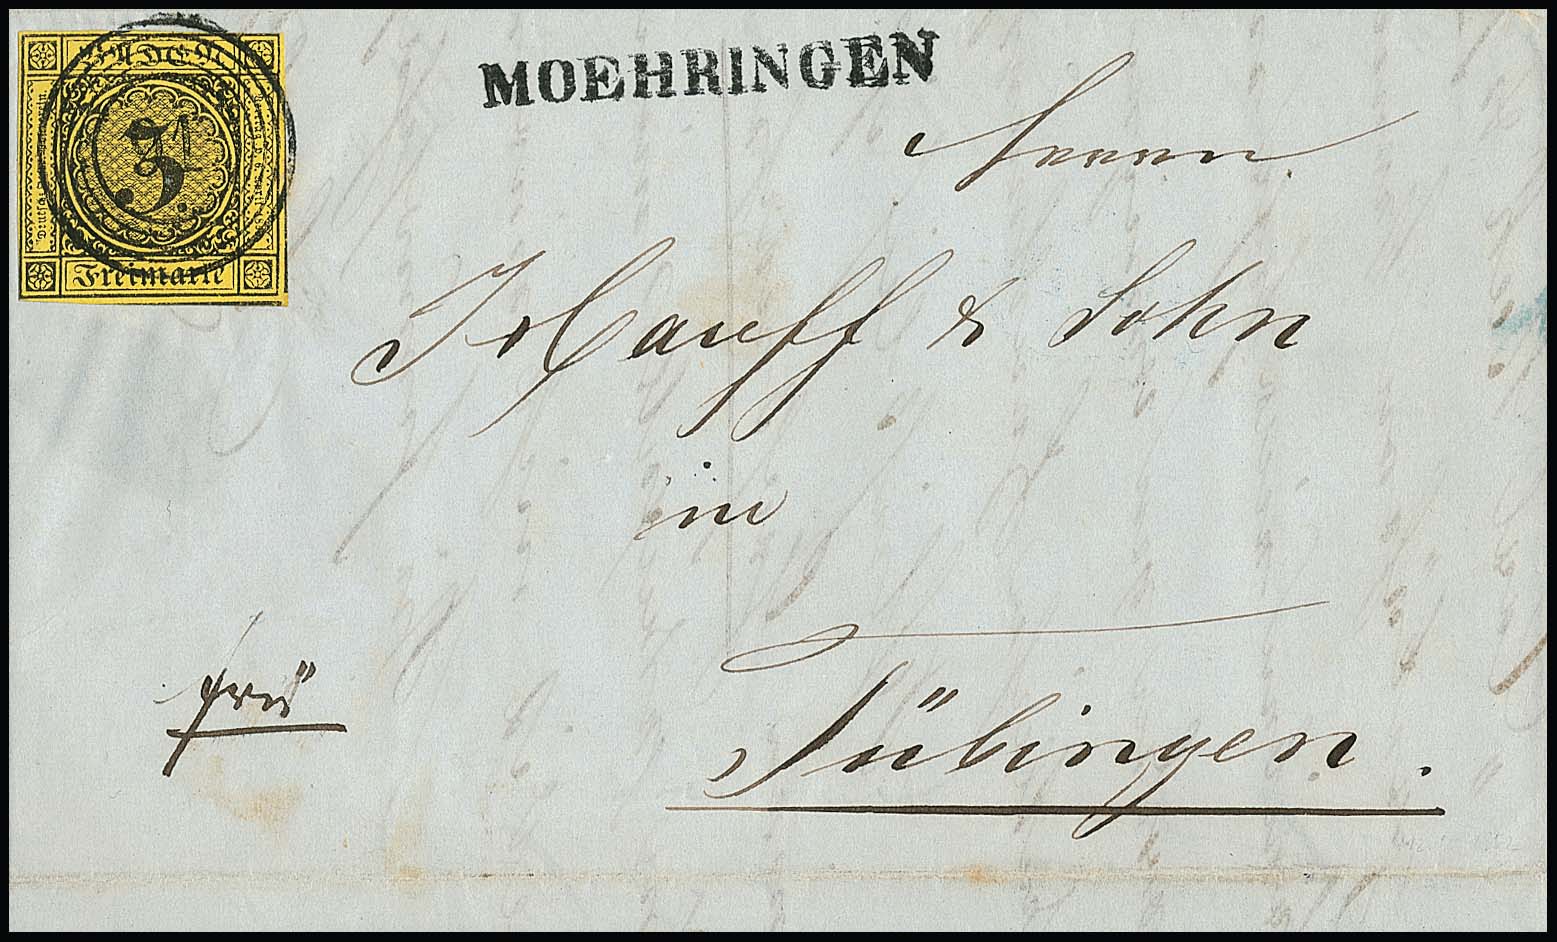 BADEN
3.
Freimarke
MOEHRINGEN
Herren
J Hauff & Sohn
in
Tübingen.